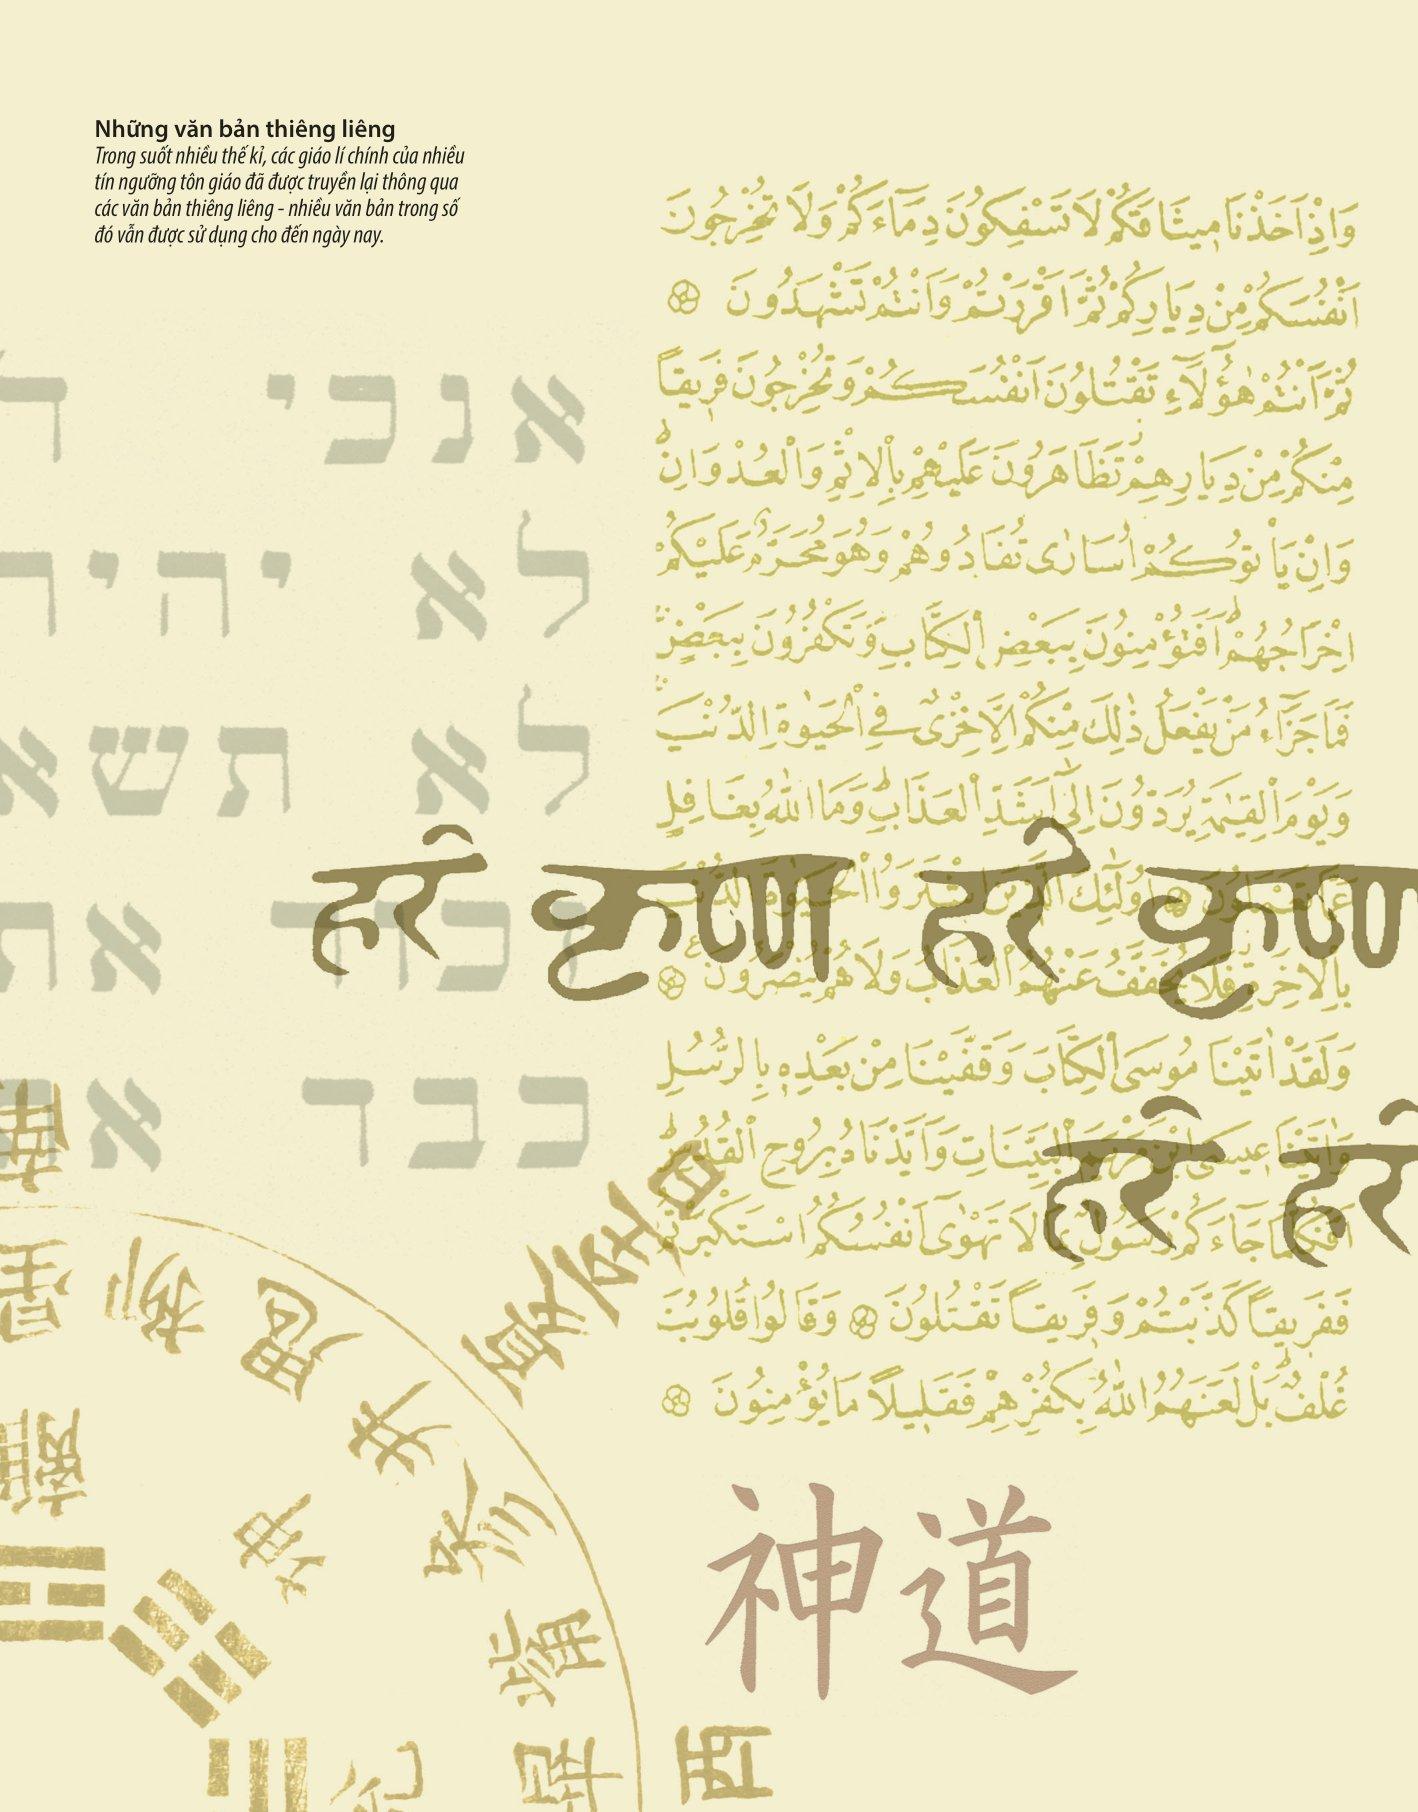 Những văn bản thiêng liêng
Trong suốt nhiều thế kỉ, các giáo lí chính của nhiều
tín ngưỡng tôn giáo đã được truyền lại thông qua
các văn bản thiêng liêng - nhiều văn bản trong số
đó vẫn được sử dụng cho đến ngày nay.
וَاِذْ اَخَذْنَا مٖيثَاقَكُمْ لَا تَسْفِكُونَ دِمَٓاءَكُمْ وَلَا تُخْرِجُونَ
اَنْفُسَكُمْ مِنْ دِيَارِكُمْ ثُمَّ اَقْرَرْتُمْ وَاَنْتُمْ تَشْهَدُونَ
ثُمَّ اَنْتُمْ هٰٓؤُ۬لَٓاءِ تَقْتُلُونَ اَنْفُسَكُمْ وَتُخْرِجُونَ فَرٖيقًا
مِنْكُمْ مِنْ دِيَارِهِمْ تَظَاهَرُونَ عَلَيْهِمْ بِالْاِثْمِ وَالْعُدْوَانِ
وَاِنْ يَأْتُوكُمْ اُسَارٰى تُفَادُوهُمْ وَهُوَ مُحَرَّمٌ عَلَيْكُمْ
اِخْرَاجُهُمْ اَفَتُؤْمِنُونَ بِبَعْضِ الْكِتَابِ وَتَكْفُرُونَ بِبَعْضٍ
فَمَا جَزَٓاءُ مَنْ يَفْعَلُ ذٰلِكَ مِنْكُمْ اِلَّا خِزْىٌ فِي الْحَيٰوةِ الدُّنْيَا
وَيَوْمَ الْقِيٰمَةِ يُرَدُّونَ اِلٰٓى اَشَدِّ الْعَذَابِ وَمَا اللّٰهُ بِغَافِلٍ
عَمَّا تَعْمَلُونَ اُو۬لٰٓئِكَ الَّذٖينَ اشْتَرَوُا الْحَيٰوةَ الدُّنْيَا
بِالْاٰخِرَةِ فَلَا يُخَفَّفُ عَنْهُمُ الْعَذَابُ وَلَا هُمْ يُنْصَرُونَ
وَلَقَدْ اٰتَيْنَا مُوسَى الْكِتَابَ وَقَفَّيْنَا مِنْ بَعْدِهٖ بِالرُّسُلِ
وَاٰتَيْنَا عٖيسَى ابْنَ مَرْيَمَ الْبَيِّنَاتِ وَاَيَّدْنَاهُ بِرُوحِ الْقُدُسِ
اَفَكُلَّمَا جَٓاءَكُمْ رَسُولٌ بِمَا لَا تَهْوٰٓى اَنْفُسُكُمُ اسْتَكْبَرْتُمْ
فَفَرٖيقًا كَذَّبْتُمْ وَفَرٖيقًا تَقْتُلُونَ وَقَالُوا قُلُوبُنَا
غُلْفٌ بَلْ لَعَنَهُمُ اللّٰهُ بِكُفْرِهِمْ فَقَلٖيلًا مَا يُؤْمِنُونَ
אנכי
לא יהיה
לא תשא
זכור את
כבד את
हरे कृष्ण हरे कृष्ण
हरे हरे
神道
星
柳
鬼
井
坤
酉